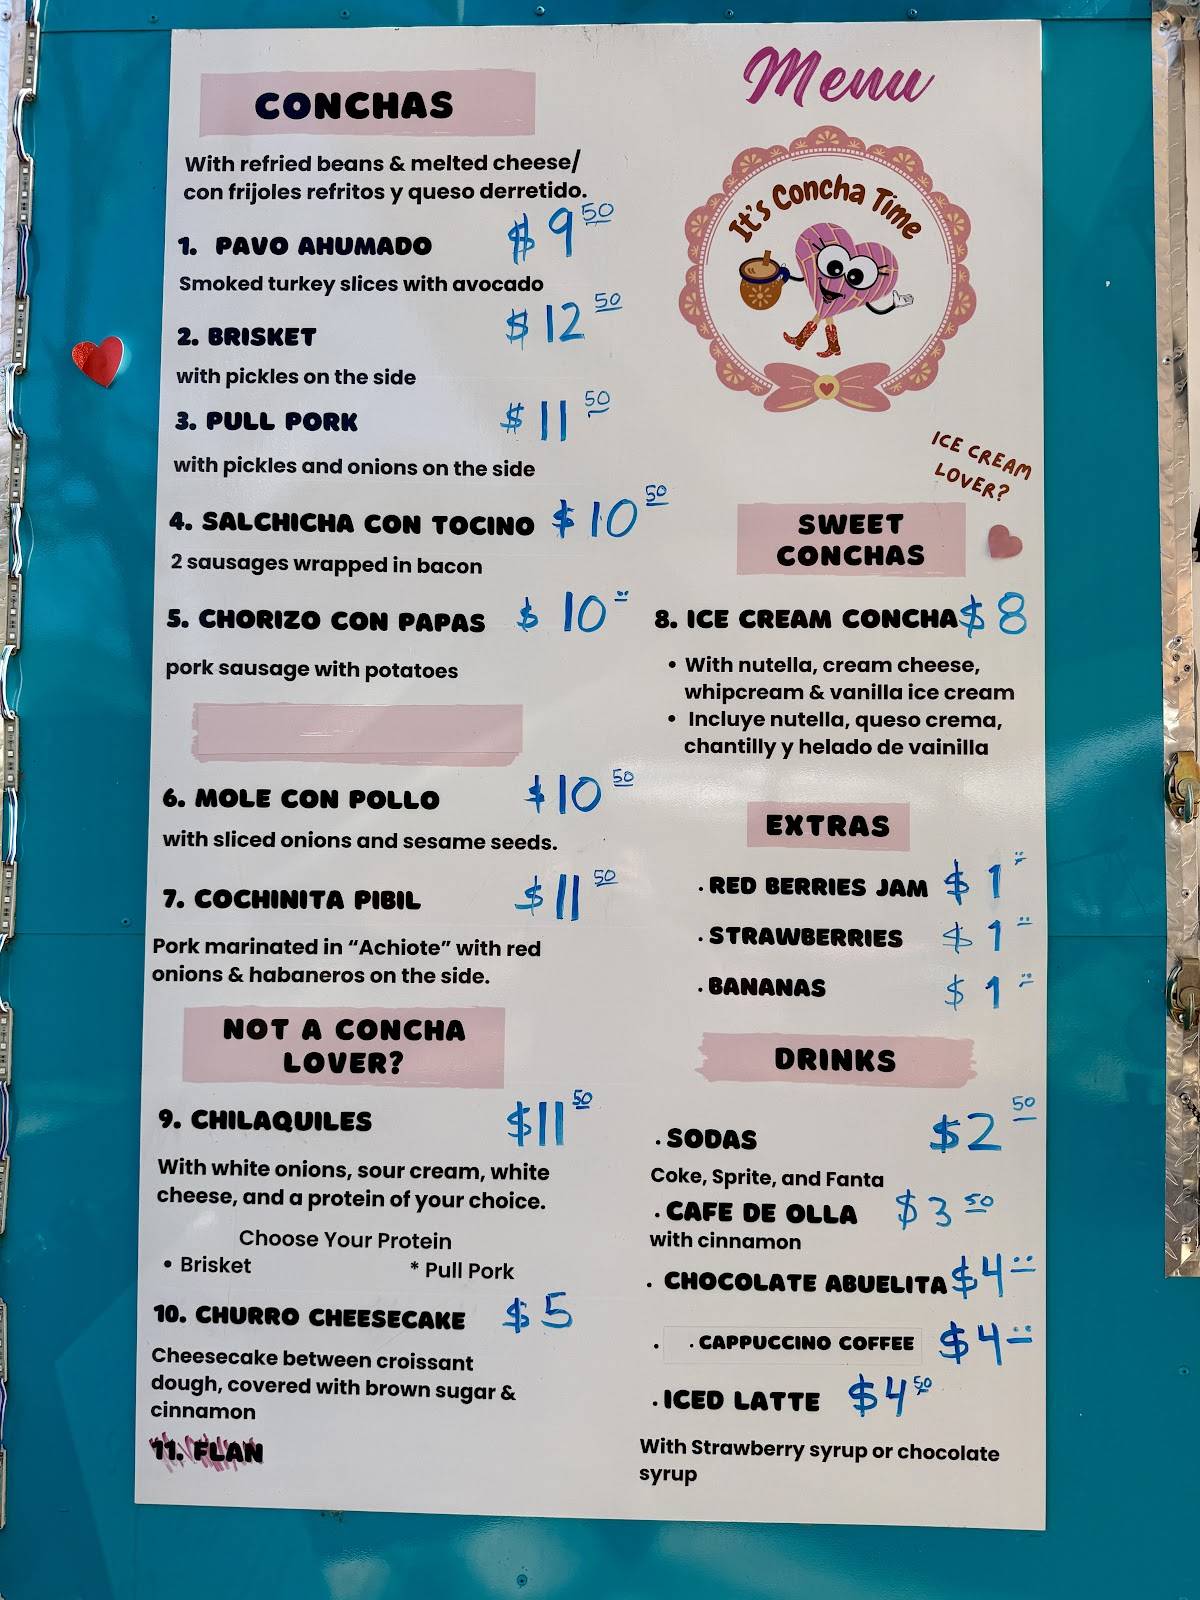 Menu
It's Concha Time
CONCHAS
With refried beans & melted cheese/
con frijoles refritos y queso derretido.
1. PAVO AHUMADO $9 50
Smoked turkey slices with avocado
2. BRISKET $12 50
with pickles on the side
3. PULL PORK $11 50
with pickles and onions on the side
4. SALCHICHA CON TOCINO $10 50
2 sausages wrapped in bacon
5. CHORIZO CON PAPAS $10
pork sausage with potatoes
6. MOLE CON POLLO $10 50
with sliced onions and sesame seeds.
7. COCHINITA PIBIL $11 50
Pork marinated in “Achiote” with red
onions & habaneros on the side.
NOT A CONCHA
LOVER?
9. CHILAQUILES $11 50
With white onions, sour cream, white
cheese, and a protein of your choice.
Choose Your Protein
• Brisket * Pull Pork
10. CHURRO CHEESECAKE $5
Cheesecake between croissant
dough, covered with brown sugar &
cinnamon
11. FLAN
ICE CREAM
LOVER?
SWEET
CONCHAS
8. ICE CREAM CONCHA $8
• With nutella, cream cheese,
whipcream & vanilla ice cream
• Incluye nutella, queso crema,
chantilly y helado de vainilla
EXTRAS
. RED BERRIES JAM $1
. STRAWBERRIES $1
. BANANAS $1
DRINKS
. SODAS $2 50
Coke, Sprite, and Fanta
. CAFE DE OLLA $3 50
with cinnamon
. CHOCOLATE ABUELITA $4
. . CAPPUCCINO COFFEE $4
. ICED LATTE $4 50
With Strawberry syrup or chocolate
syrup